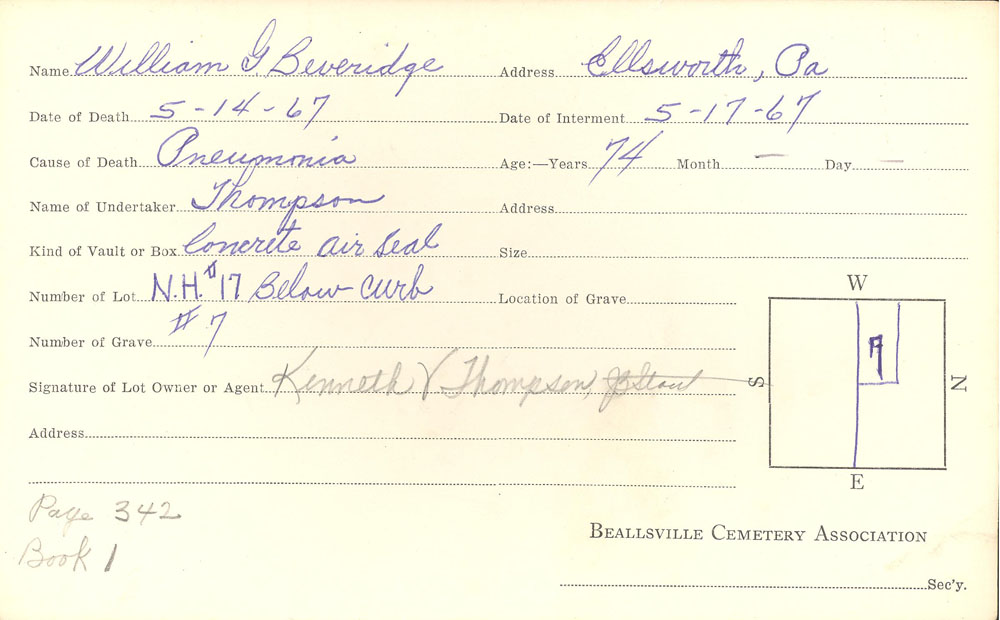 Name William G. Beveridge Address Ellsworth, Pa
Date of Death 5-14-67 Date of Interment 5-17-67
Cause of Death Pneumonia Age:—Years 74 Month — Day —
Name of Undertaker Thompson Address
Kind of Vault or Box Concrete air seal Size
Number of Lot N.H. #17 Below Curb Location of Grave
Number of Grave #7
Signature of Lot Owner or Agent Kenneth V Thompson,
Address
W
S
N
E
Page 342
Book 1
BEALLSVILLE CEMETERY ASSOCIATION
Sec'y.